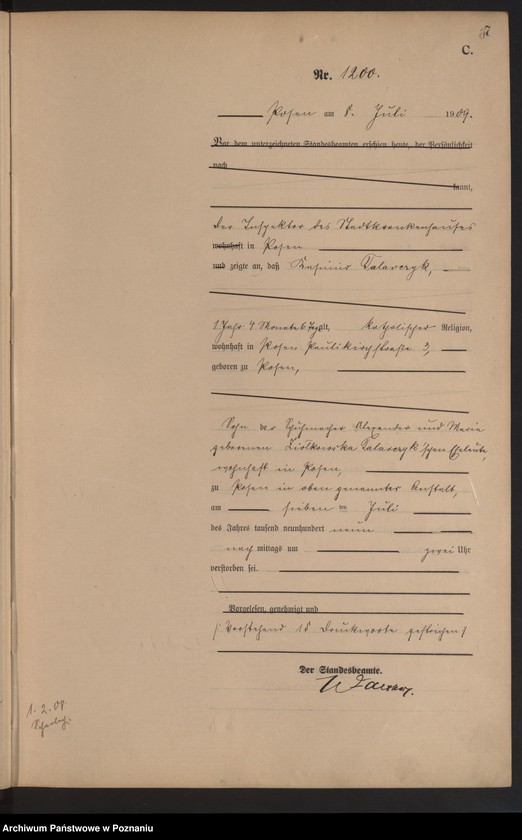 C.
Nr. 1200.
Posen am 8. Juli 1909.
Vor dem unterzeichneten Standesbeamten erschien heute, der Persönlichkeit
nach
kannt,
der Inspektor des Stadtkrankenhauses
wohnhaft in Posen
und zeigte an, daß Kasimir Talarczyk,
1 Jahr 4 Monate 6 Tg alt, katholischer Religion,
wohnhaft in Posen Paulikirchstraße 3,
geboren zu Posen,
Sohn der Schuhmacher Alexander und Maria
geborenen Ziolkowska Talarczyk'schen Eheleute,
wohnhaft in Posen,
zu Posen in oben genannter Anstalt,
am sieben ten Juli
des Jahres tausend neunhundert neun
nach mittags um zwei Uhr
verstorben sei.
Vorgelesen, genehmigt und
(Vorstehend 18 Druckworte gestrichen)
Der Standesbeamte.
1. 2. 08.
Archiwum Państwowe w Poznaniu